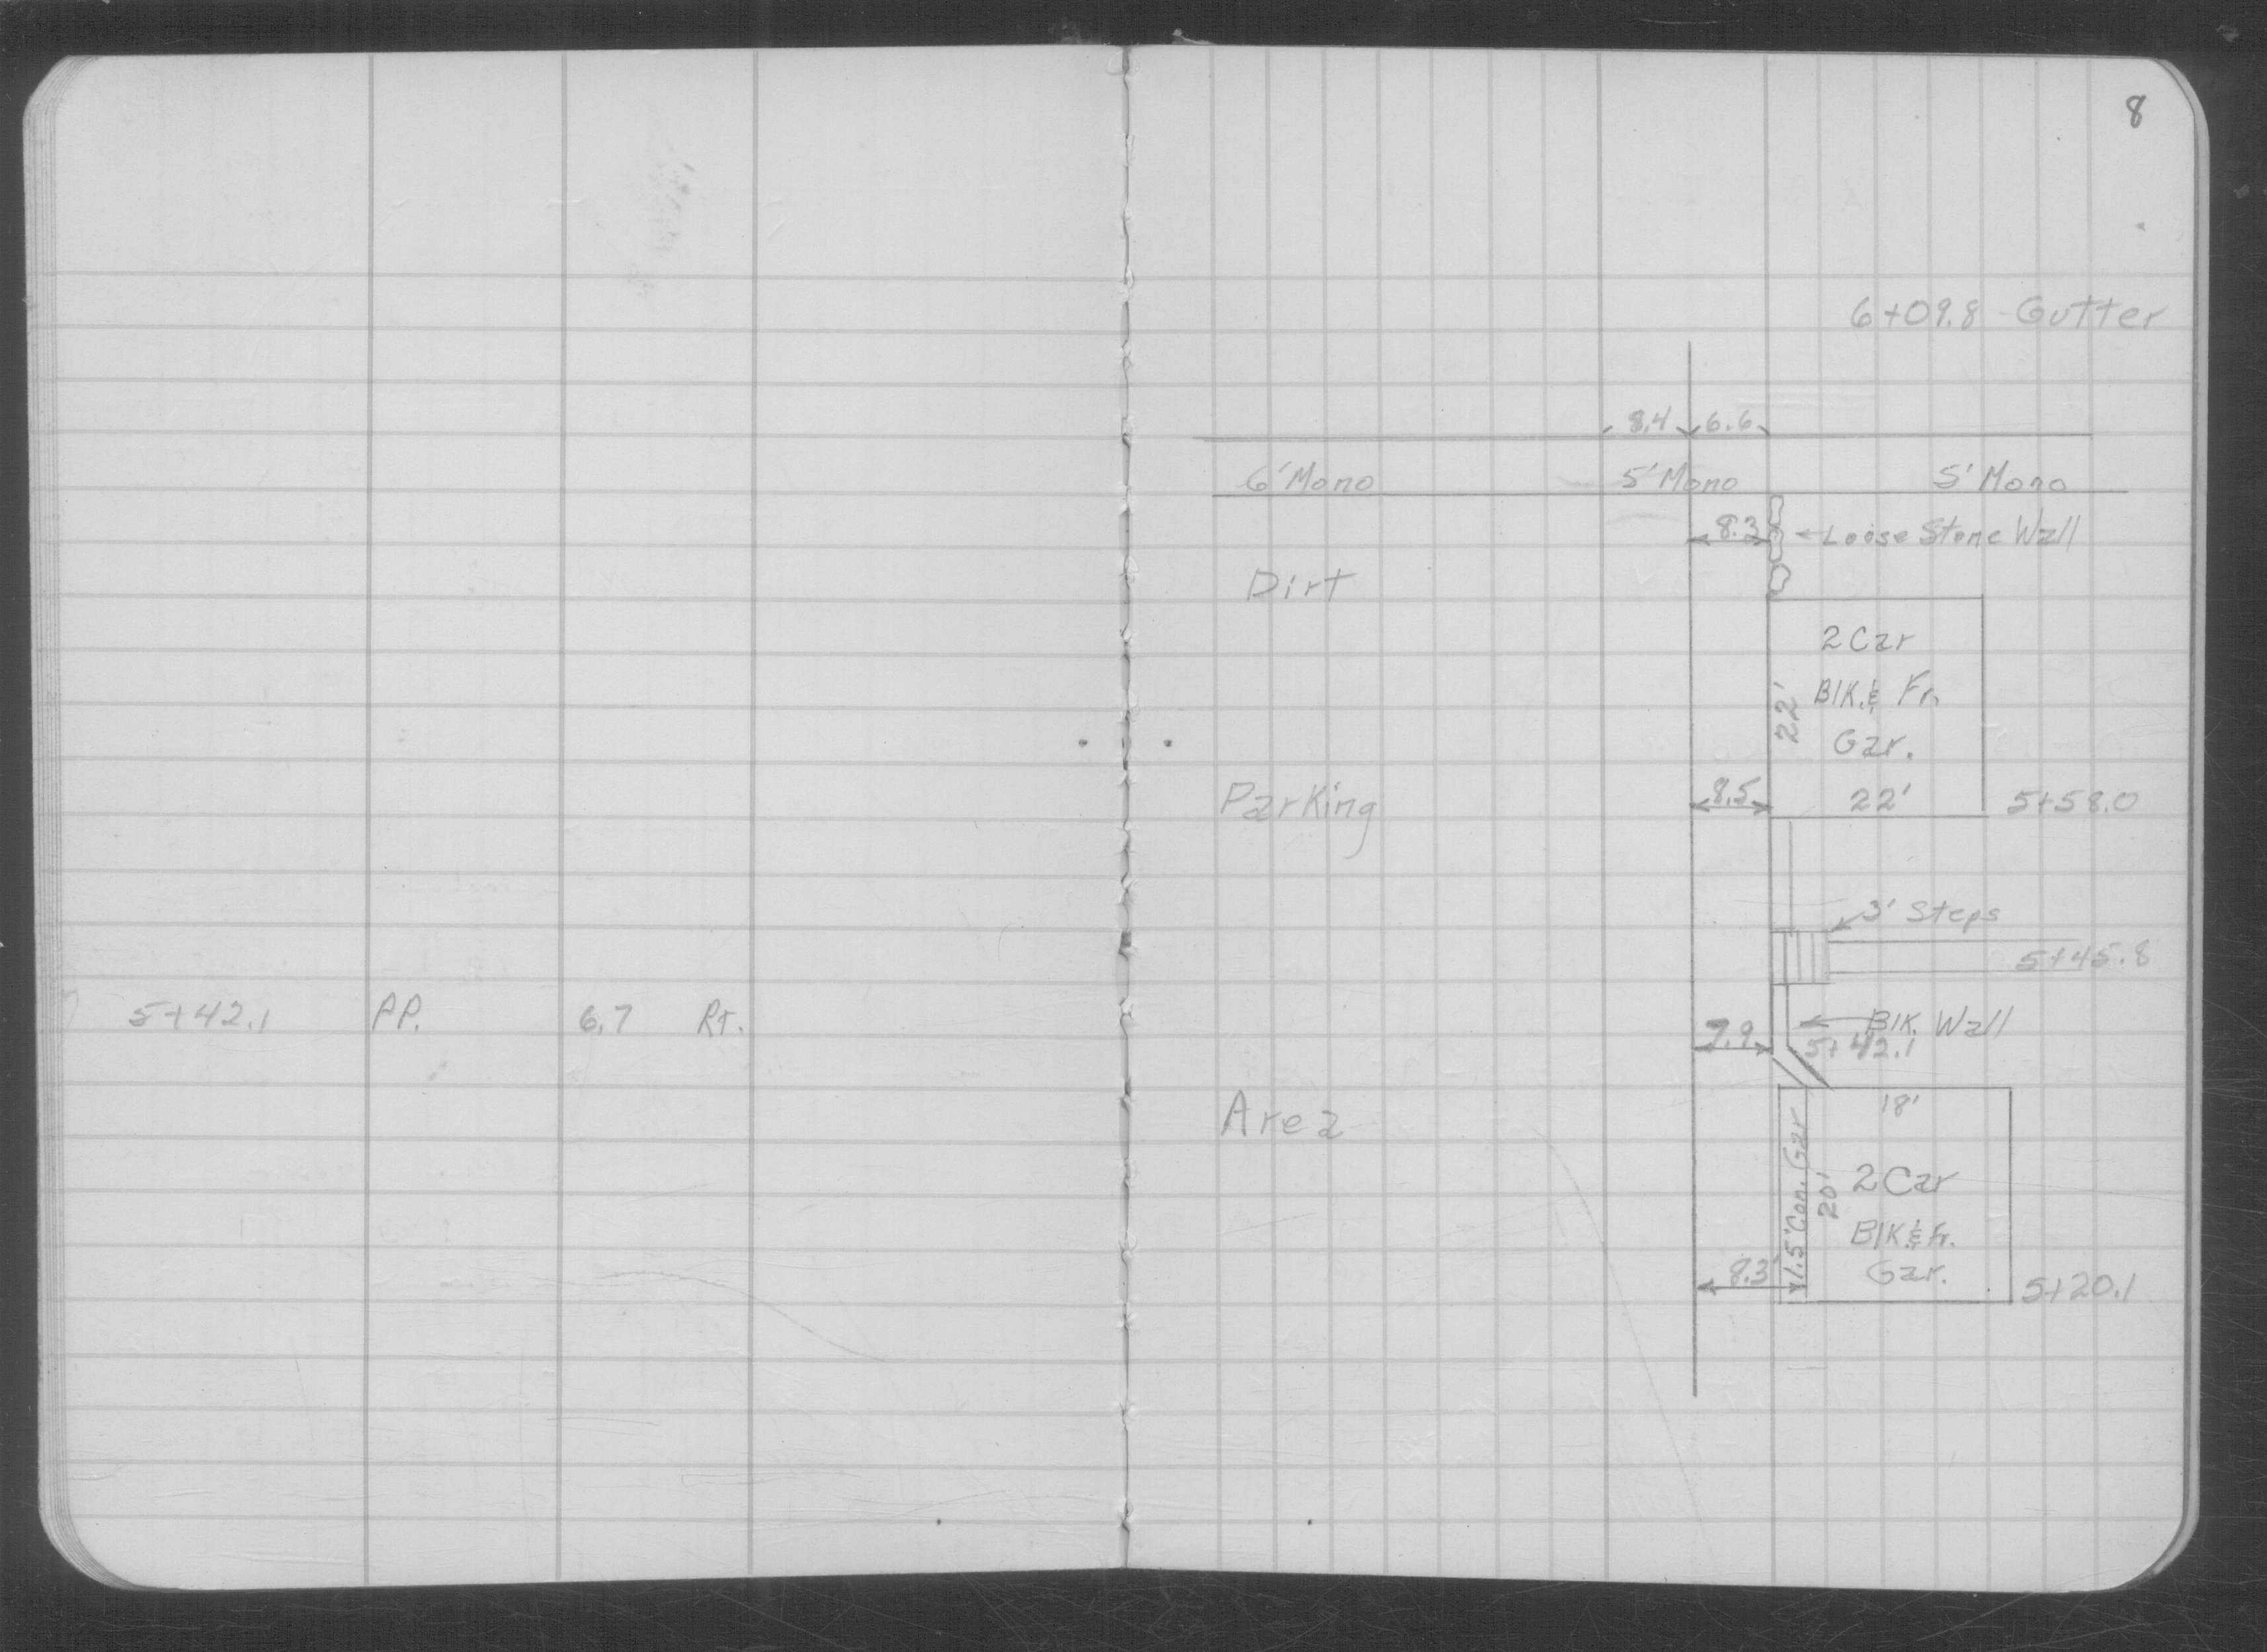 5+42.1 PP. 6.7 Rt.
8
6+09.8 - Gutter
8.4 6.6
6' Mono 5' Mono 5' Mono
8.3 Loose Stone Wall
Dirt
2 Car
22' Blk. & Fr.
Gar.
Parking 8.5 22' 5+58.0
3' Steps
5+45.8
7.9 Blk. Wall
5+42.1
Area 18'
1.5' Con. Gar
20' 2 Car
Blk & Fr.
8.3 Gar. 5+20.1